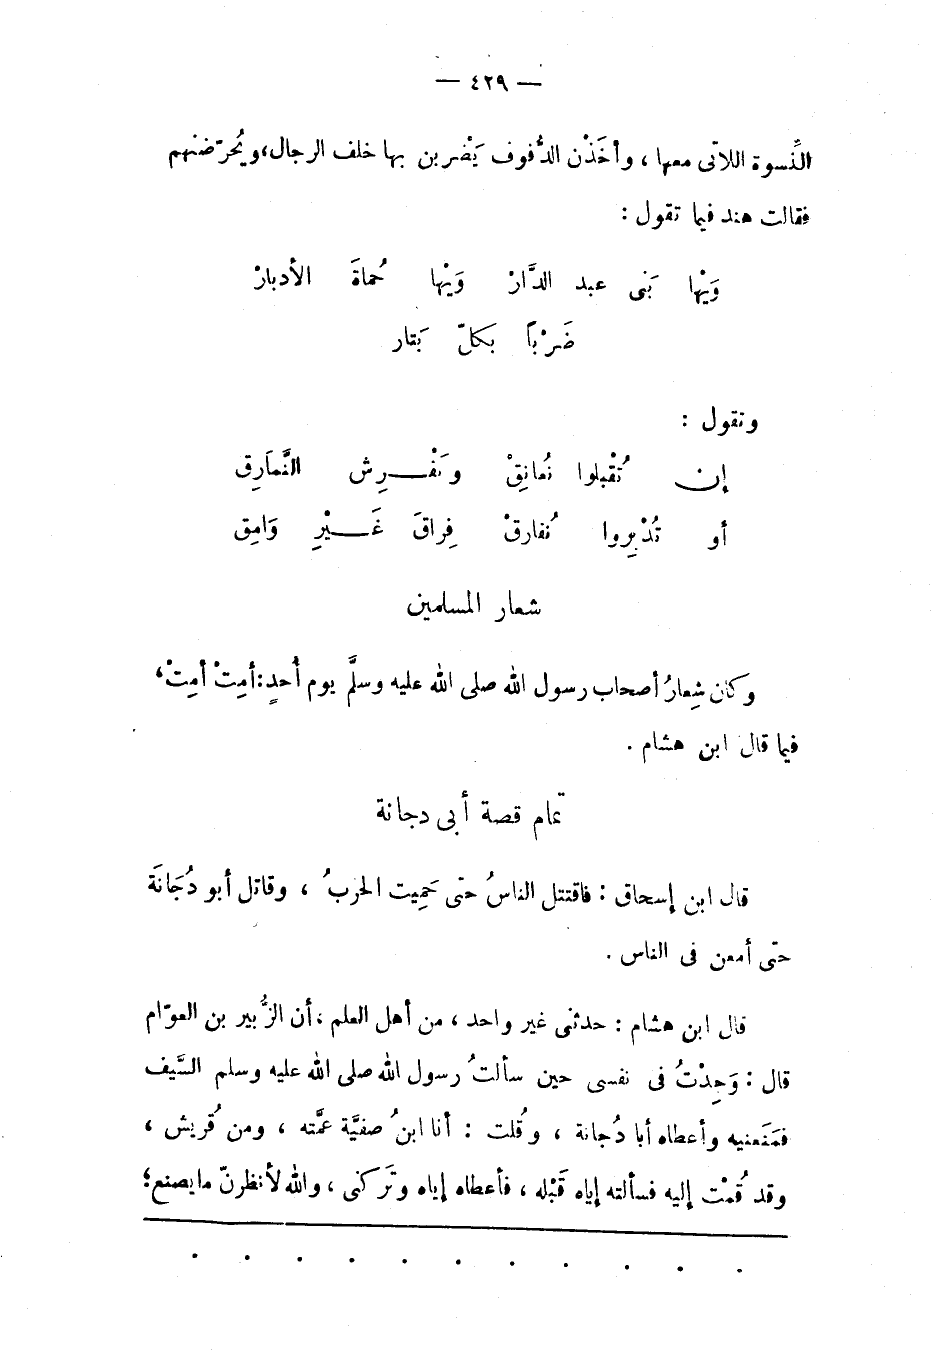 — ٤٢٩ —
النِّسوة اللاتى معها ، وأخَذْن الدُّفوف يَضْربن بها خلف الرجال، ويُحرّضنهم
فقالت هند فيما تقول :
وَيْها بَنى عبد الدَّارْ وَيْها حُماةَ الأدبارْ
ضَرْباً بكلّ بَتار
وتقول :
إن تُقْبلوا نُعانِقْ ونَفْـرِش النَّمَارِق
أو تُدْبِروا نُفارقْ فِراقَ غَـيْرِ وَامِق
شعار المسلمين
وكان شِعارُ أصحاب رسول الله صلى الله عليه وسلَّم يوم أُحدٍ: أمِتْ أمِتْ،
فيما قال ابن هشام .
تمام قصة أبى دجانة
قال ابن إسحاق : فاقتتل الناسُ حتى حَمِيت الحَربُ ، وقاتل أبو دُجَانَة
حتى أمعن فى الناس .
قال ابن هشام : حدثنى غير واحد ، من أهل العلم ، أن الزُّبير بن العوّام
قال : وَجِدْتُ فى نفسى حين سألتُ رسول الله صلى الله عليه وسلم السَّيف
فمَنَعنيه وأعطاه أبا دُجانة ، وقُلت : أنا ابنُ صفيَّة عمَّته ، ومن قُريش ،
وقد قُمْت إليه فسألته إياه قَبْله ، فأعطاه إياه وتَركنى ، والله لأنظرنّ ما يصنع؛
. . . . . . . . . . .